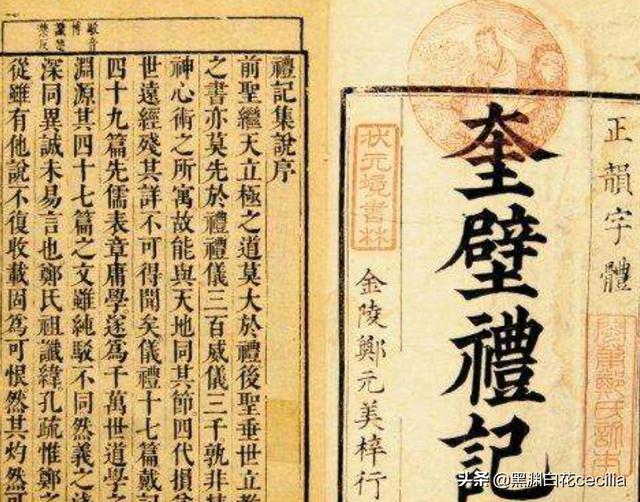 正韻字體
奎壁禮記
狀元境書林
金陵鄭元美梓行
駁音
博
讖楚
禁反
禮記集說序
前聖繼天立極之道莫大於禮後聖垂世立教
之書亦莫先於禮禮儀三百威儀三千孰非
神心術之所寓故能與天地同其節四代損益
世遠經殘其詳不可得聞矣儀禮十七篇戴記
四十九篇先儒表章庸學遂爲千萬世道學之
淵源其四十七篇之文雖純駁不同然義之淺
深同異誠未易言也鄭氏祖讖緯孔疏惟鄭之
從雖有他說不復收載固爲可恨然其灼然可
头条 @黑渊白花cecilia